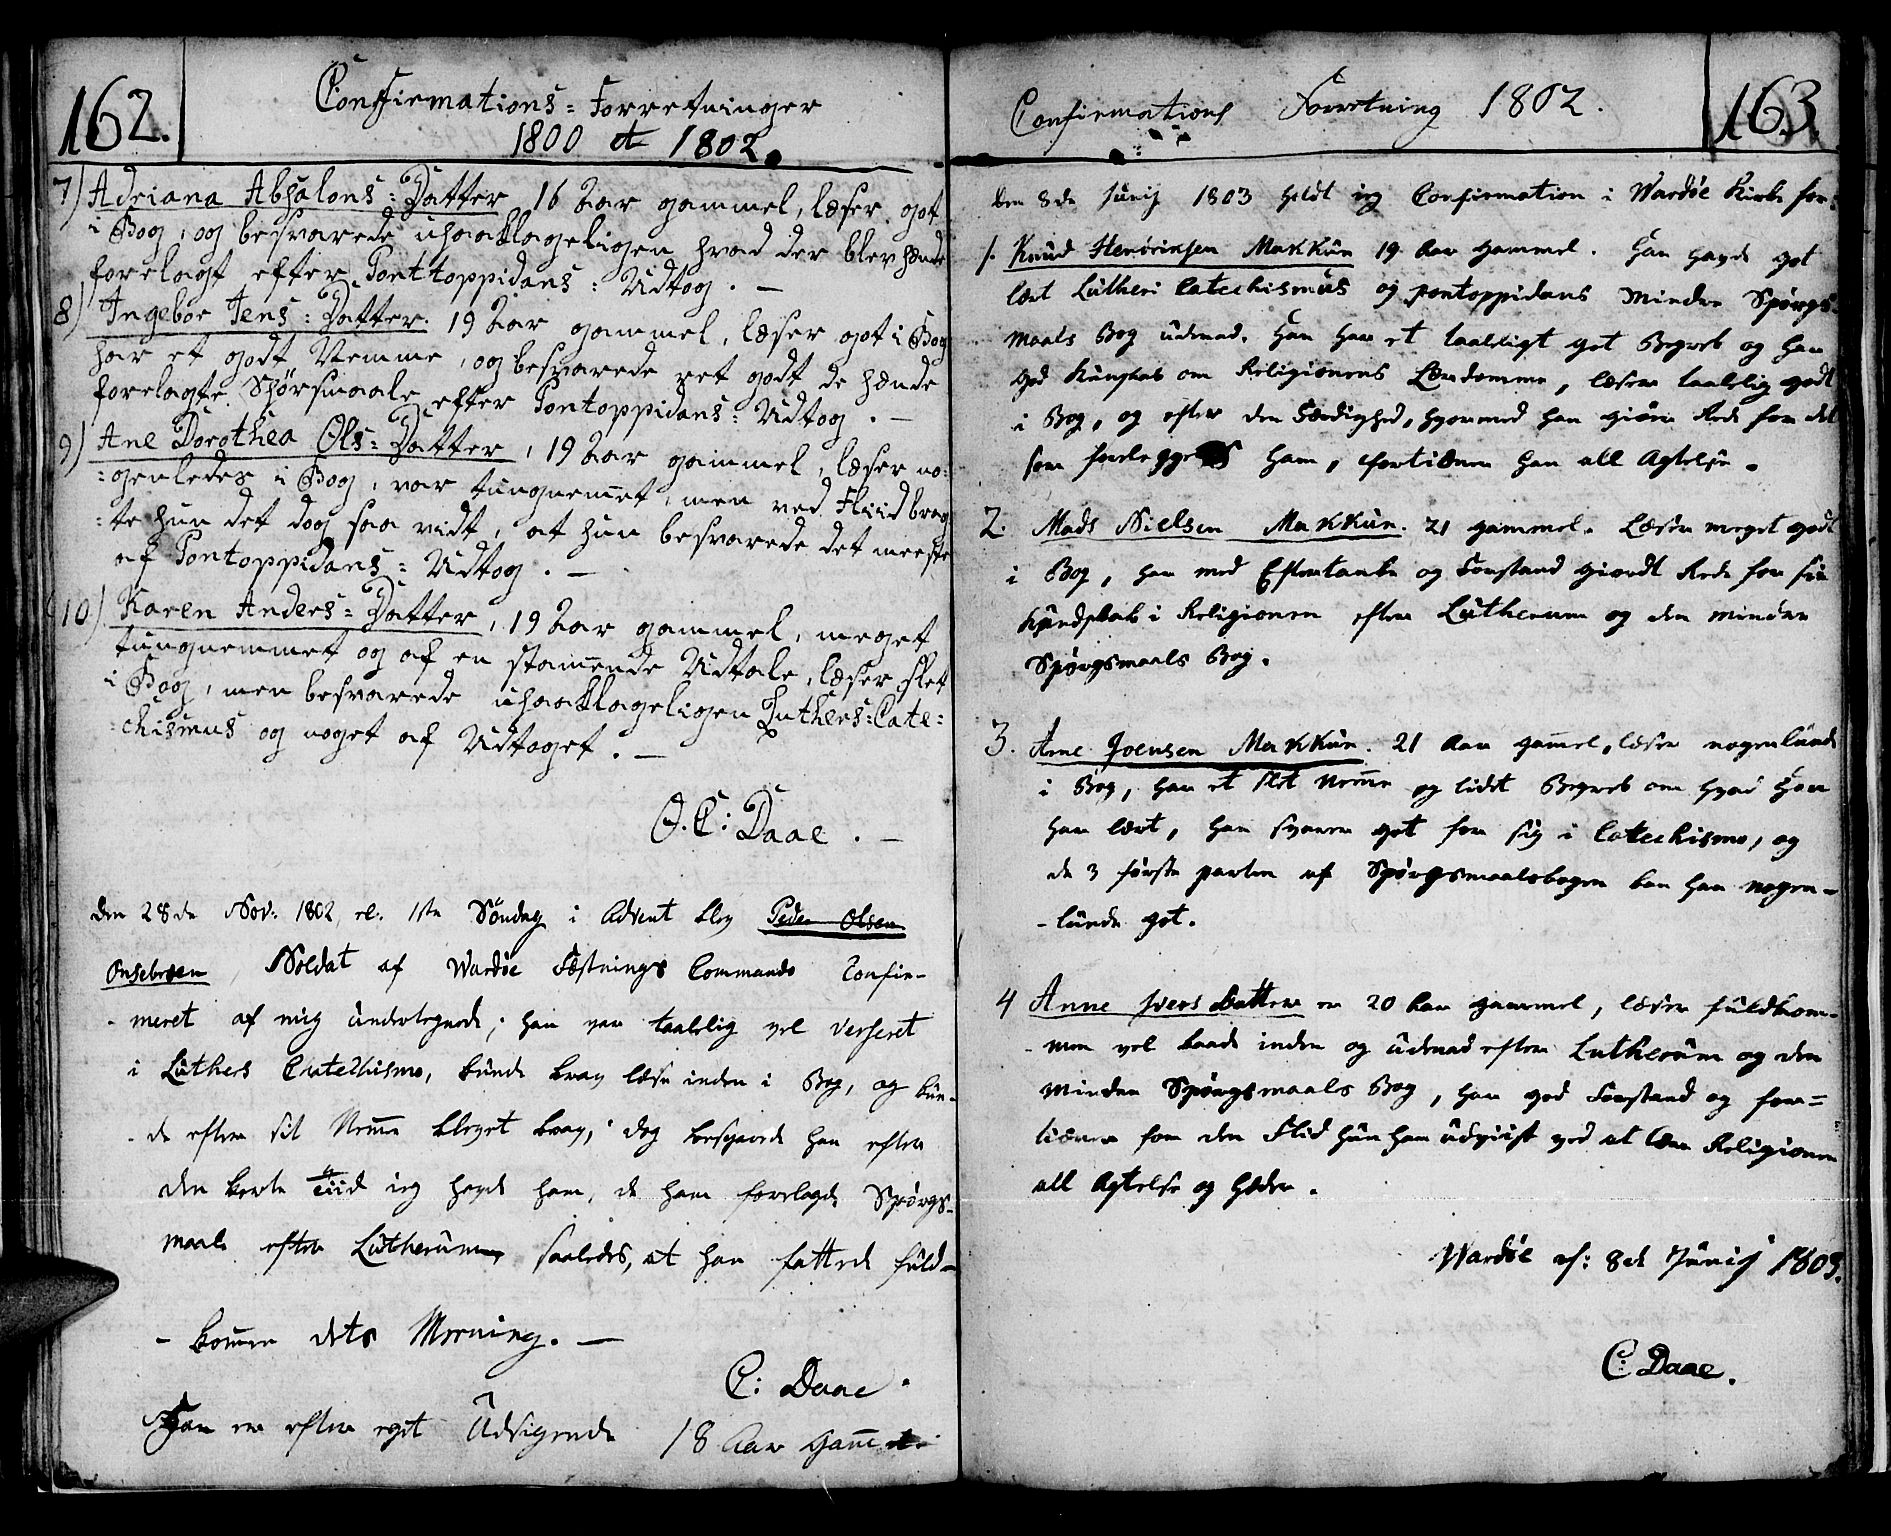 162.
Confirmations-Forretninger
1800 et 1802.
7) Adriana Absalons-Datter, 16 Aar gammel, læser got
i Bog, og besvarede upaaklageligen hvad der blev hænde
forelagt efter Ponttoppidans-Udtog. —
8) Ingebor Jens-Datter. 19 Aar gammel, læser got i Bog
har et godt Nemme, og besvarede ret godt de hænde
forelagte Spørsmaale efter Pontoppidans-Udtog. —
9) Ane Dorothea Ols-Datter, 19 Aar gammel, læser no-
-genledes i Bog, var tungnemmet, men ved Fliid brag-
-te hun det dog saa vidt, at hun besvarede det meeste
af Pontoppidans-Udtog. —
10) Karen Anders-Datter, 19 Aar gammel, meget
tungnemmet og af en stammende Udtale, læser slet
i Bog, men besvarede upaaklageligen Luthers-Cate-
-chismus og noget af Udtoget. —
O. C: Daae. —
den 28de Nov: 1802, el. 1ste Søndag i Advent blev Peder Olsen
Onsebroen, Soldat af Wardøe Fæstnings Commando Confir-
-meret af mig undertegnede; han var taalelig vel verseret
i Luthers Catechismo, kunde brav læse inden i Bog, og kun-
-de efter sit Nemme blevet brav; dog besvarede han efter
den korte Tiid ieg havde ham, de ham forelagde Spørgs-
maale efter Lutherum, saaledes, at han fattede fuld-
-kommen dets Meening. —
C: Daae.
Han er efter eget Udsigende 18 Aar Gammel.
163.
Confirmations Forretning 1802.
den 8de Junij 1803 holdt ieg Confirmation i Wardøe Kirke for:
1. Knud Hendrichsen Makkün 19 Aar gammel. Han havde got
lært Lutheri Catechismus og pontoppidans Mindre Spørgs-
maals Bog udenad. Han har et taaleligt got Begreb og har
god Kundskab om Religionens Lærdomme, læser taalelig godt
i Bog, og efter den Færdighed, hvormed han giør Rede for det
som forelegges ham, fortiener han all Agtelse.
2. Mads Nielsen Makkün. 21 gammel. Læser meget godt
i Bog, har med Eftertanke og Forstand giordt Rede for sin
Kundskab i Religionen efter Lutherum og den mindre
Spørgsmaals Bog.
3. Arne Joensen Makkün. 21 Aar gammel, læser nogenlunde
i Bog, har et slet Nemme og lidet Begreb om hvad Han
har lært, han svarer got for sig i Catechismo, og
de 3 første parter af Spørgsmaalsbogen kan han nogen-
-lunde got.
4 Anne Ivers Datter er 20 Aar gammel, læser fuldkom-
-men vel baade inden og udenad efter Lutherum og den
Mindre Spørgsmaals Bog, har god Forstand og for-
tiener for den Flid hun har udviist ved at lære Religionen
all Agtelse og Heder.
Wardøe d: 8de Junij 1803.
C: Daae.